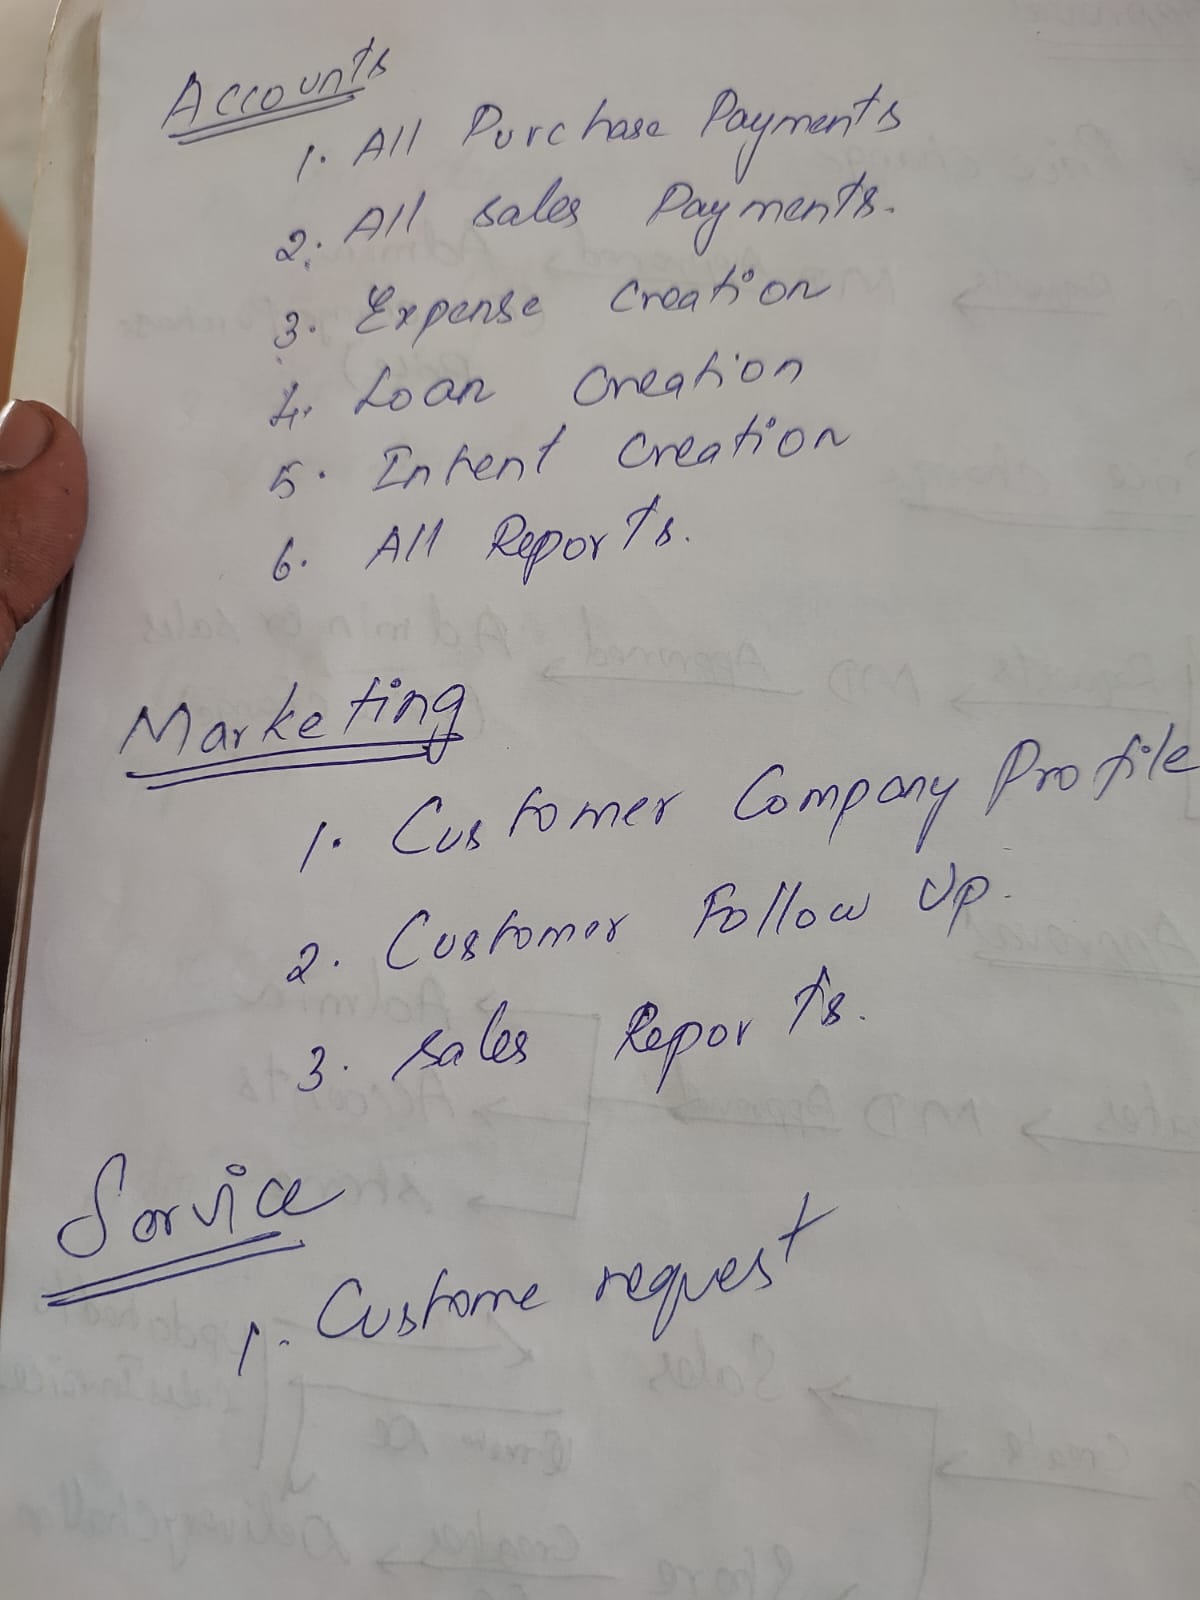 Accounts
1. All Purchase Payments
2. All sales Payments.
3. Expense Creation
4. Loan Creation
5. Intent Creation
6. All Reports.
Marketing
1. Customer Company Profile
2. Customer Follow Up.
3. sales Reports.
Service
1. Custome request